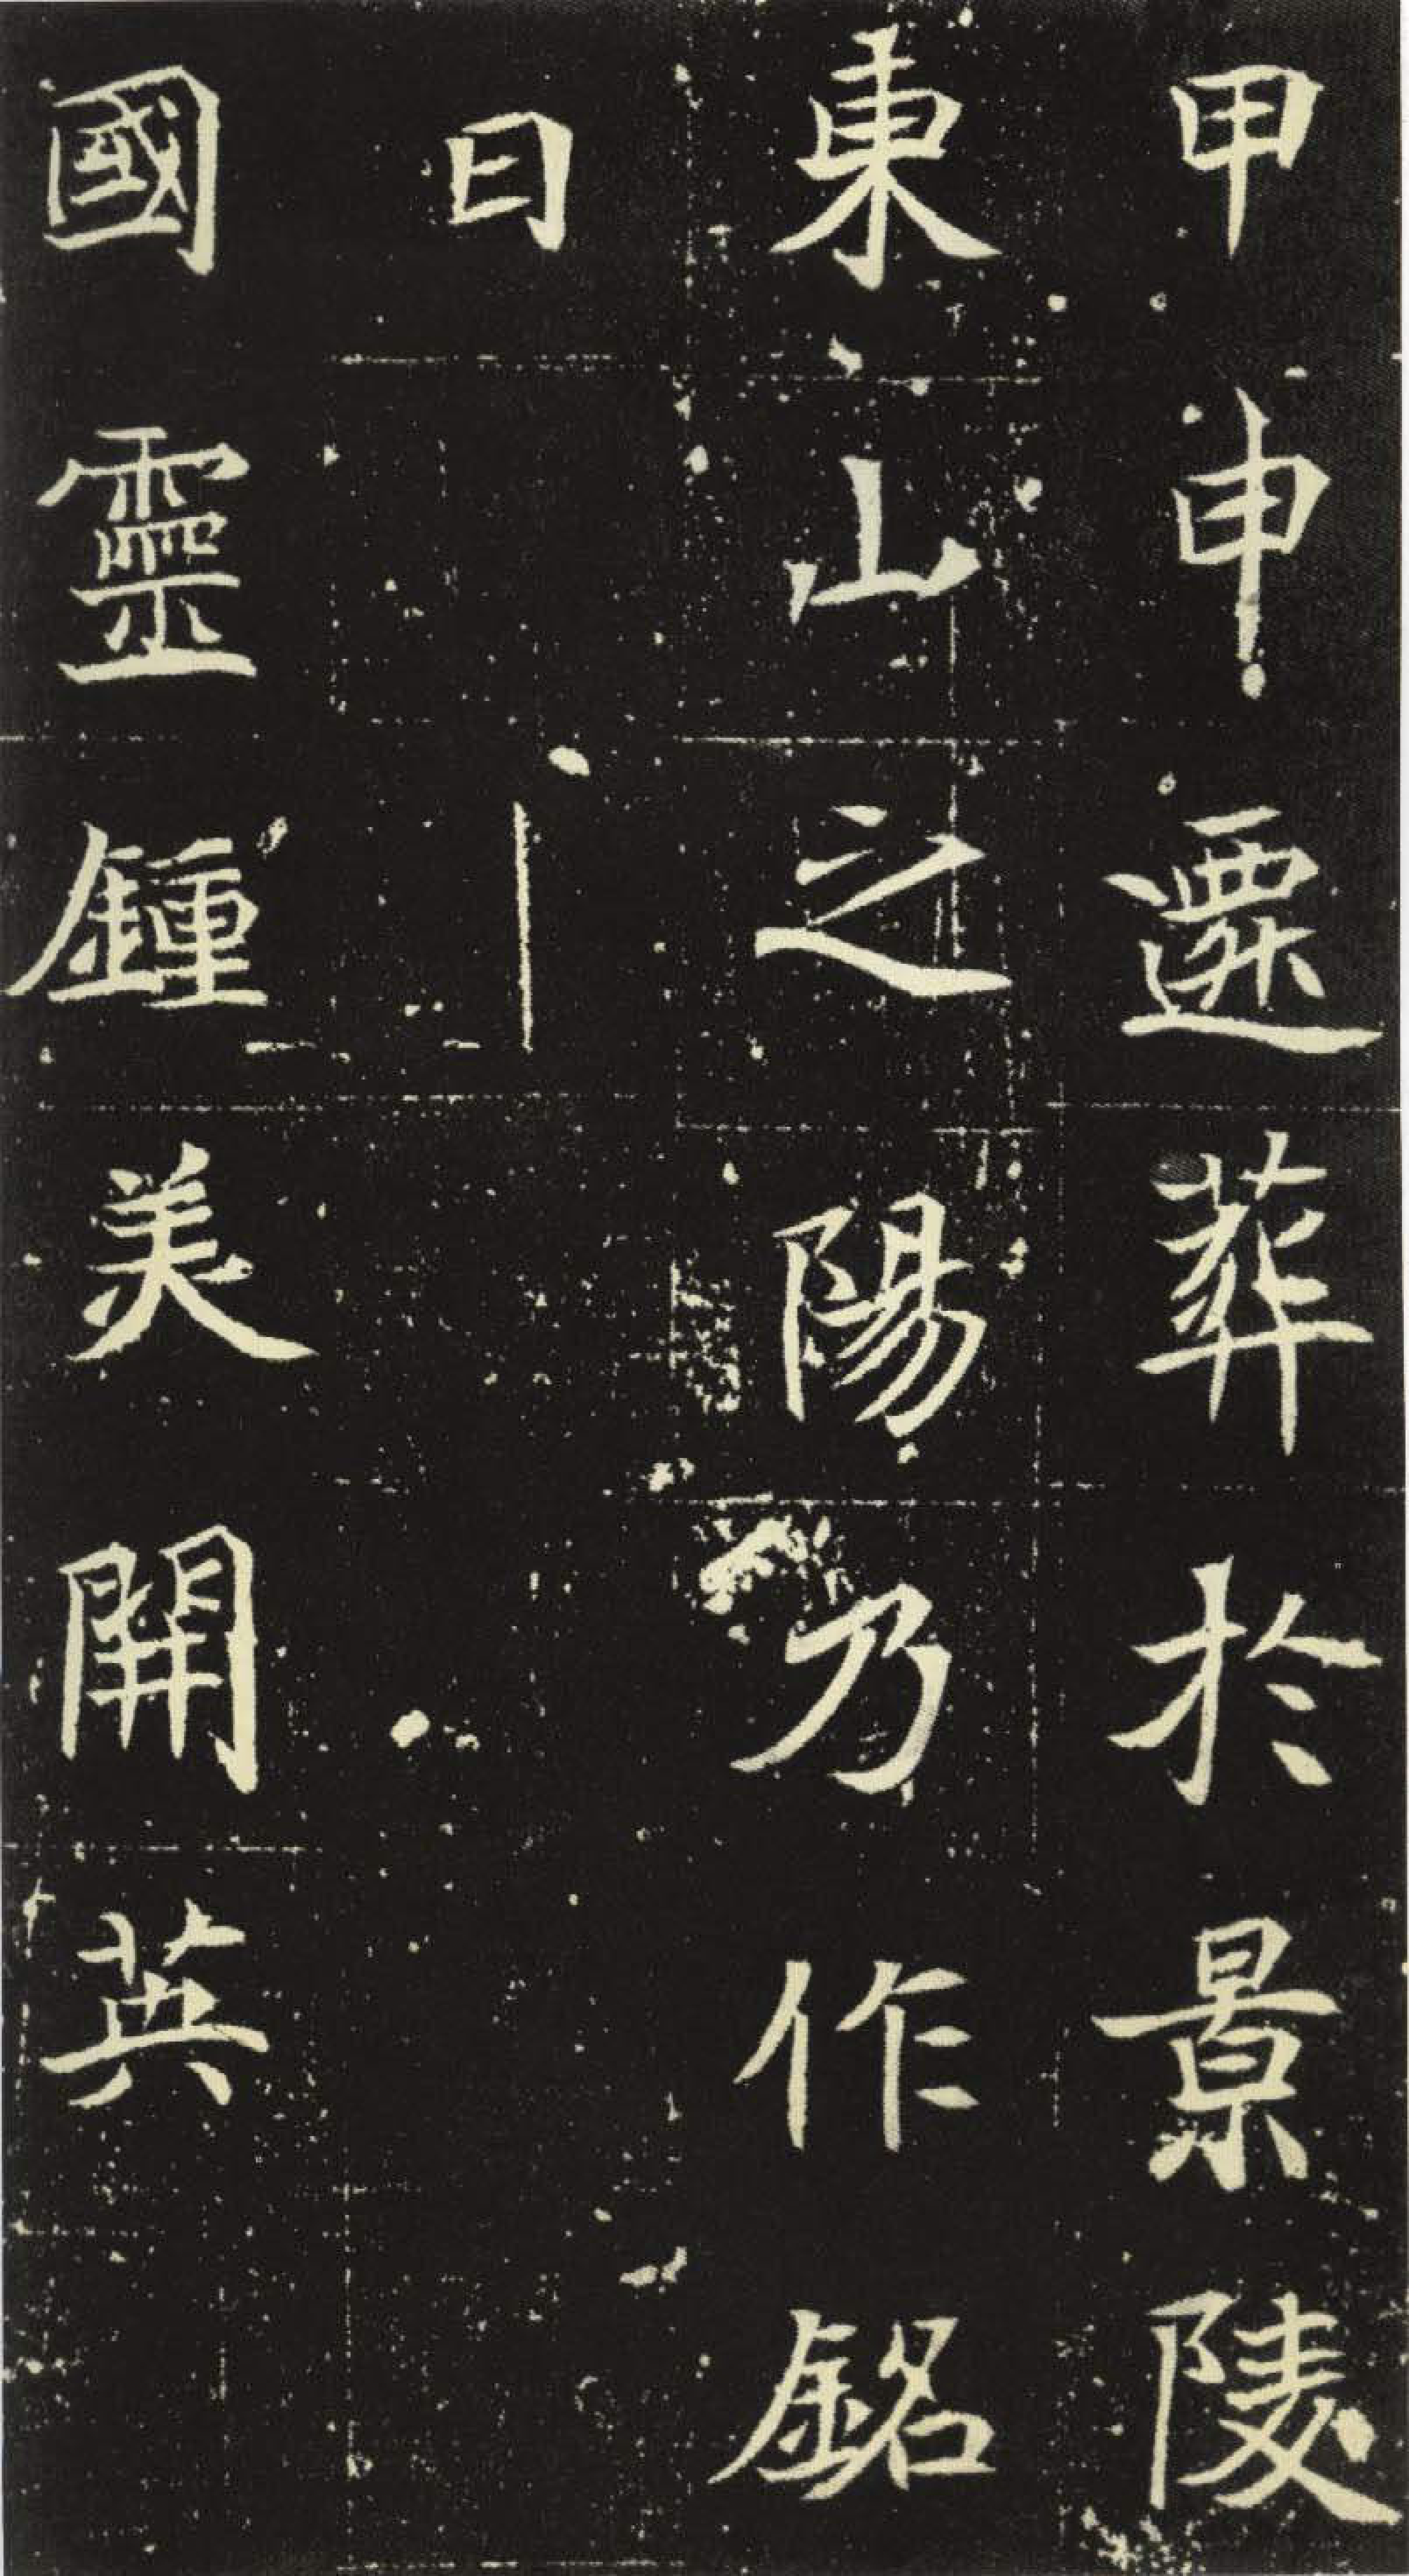 甲申遷葬於景陵
東山之陽乃作銘
曰
國靈鍾美開英